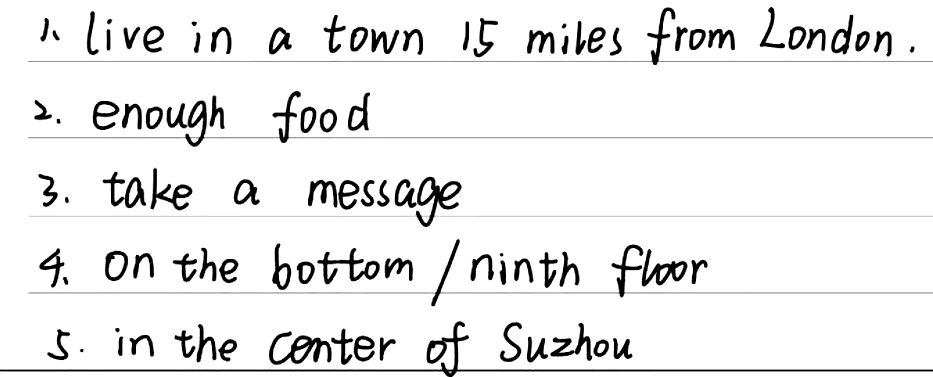 1. live in a town 15 miles from London.
2. enough food
3. take a message
4. on the bottom / ninth floor
5. in the center of Suzhou